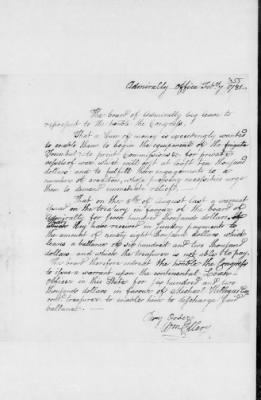 355
Admiralty Office Feb.ry 1781
The board of Admiralty beg leave to
represent to the hon.ble the Congress.
That a Sum of money is exceedingly wanted
to enable them to begin the equipment of the frigate
Trumbull, to print Commissions for private
vessels of war which will cost at least ten thousand
dollars and to fulfill their engagements to a
number of creditors, whose pressing necessities urge
them to demand immediate relief.
That on the 9th of August last a warrant
upon the treasury in favour of the board of
Admiralty for seven hundred thousand dollars,
they have received in sundry payments to
the amount of ninety eight thousand dollars which
leaves a ballance of six hundred and two thousand
dollars and which the treasurer is not able to pay.
The board therefore intreat the hon.ble the Congress
to issue a warrant upon the continental Loan
officer in this State for six hundred and two
thousands dollars in favour of Michael Hillegas Esq
treasurer to enable him to discharge said
ballance.
By Order
Wm. Ellery